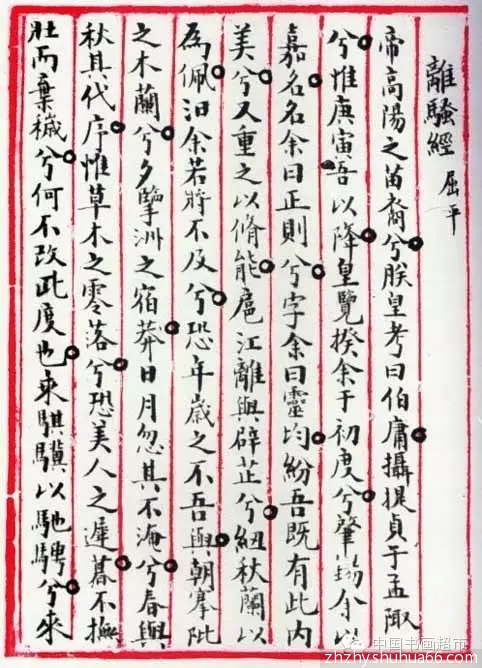 離騷經 屈平
帝高陽之苗裔兮朕皇考曰伯庸攝提貞于孟陬
兮惟庚寅吾以降皇覽揆余于初度兮肇錫余以
嘉名名余曰正則兮字余曰靈均紛吾既有此內
美兮又重之以脩能扈江離與辟芷兮紉秋蘭以
為佩汩余若將不及兮恐年歲之不吾與朝搴阰
之木蘭兮夕擥洲之宿莽日月忽其不淹兮春與
秋其代序惟草木之零落兮恐美人之遲暮不撫
壯而棄穢兮何不改此度也來騏驥以馳騁兮來
中国书画超市
zhzhyshuhua66.com